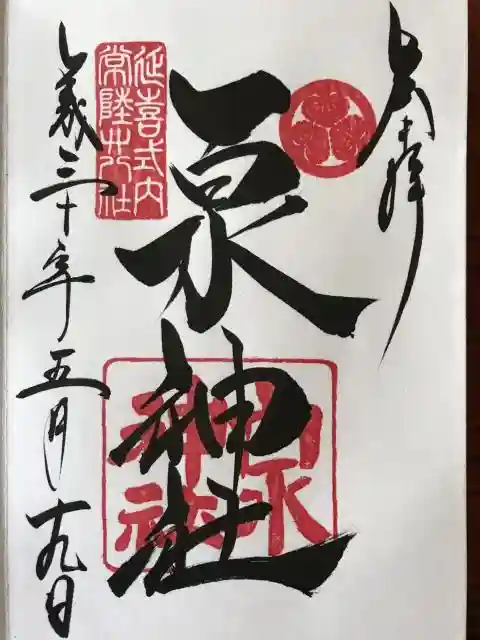 奉拝
泉神社
泉
神社
延喜式内
常陸廿八社
平成三十年五月十九日